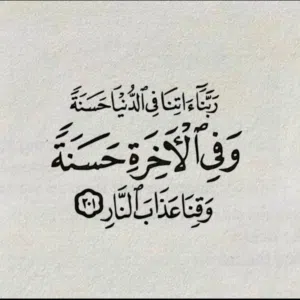 رَبَّنَآ ءَاتِنَا فِي ٱلدُّنْيَا حَسَنَةً
وَفِي ٱلْأَخِرَةِ حَسَنَةً
وَقِنَا عَذَابَ ٱلنَّارِ ۝٢٠١